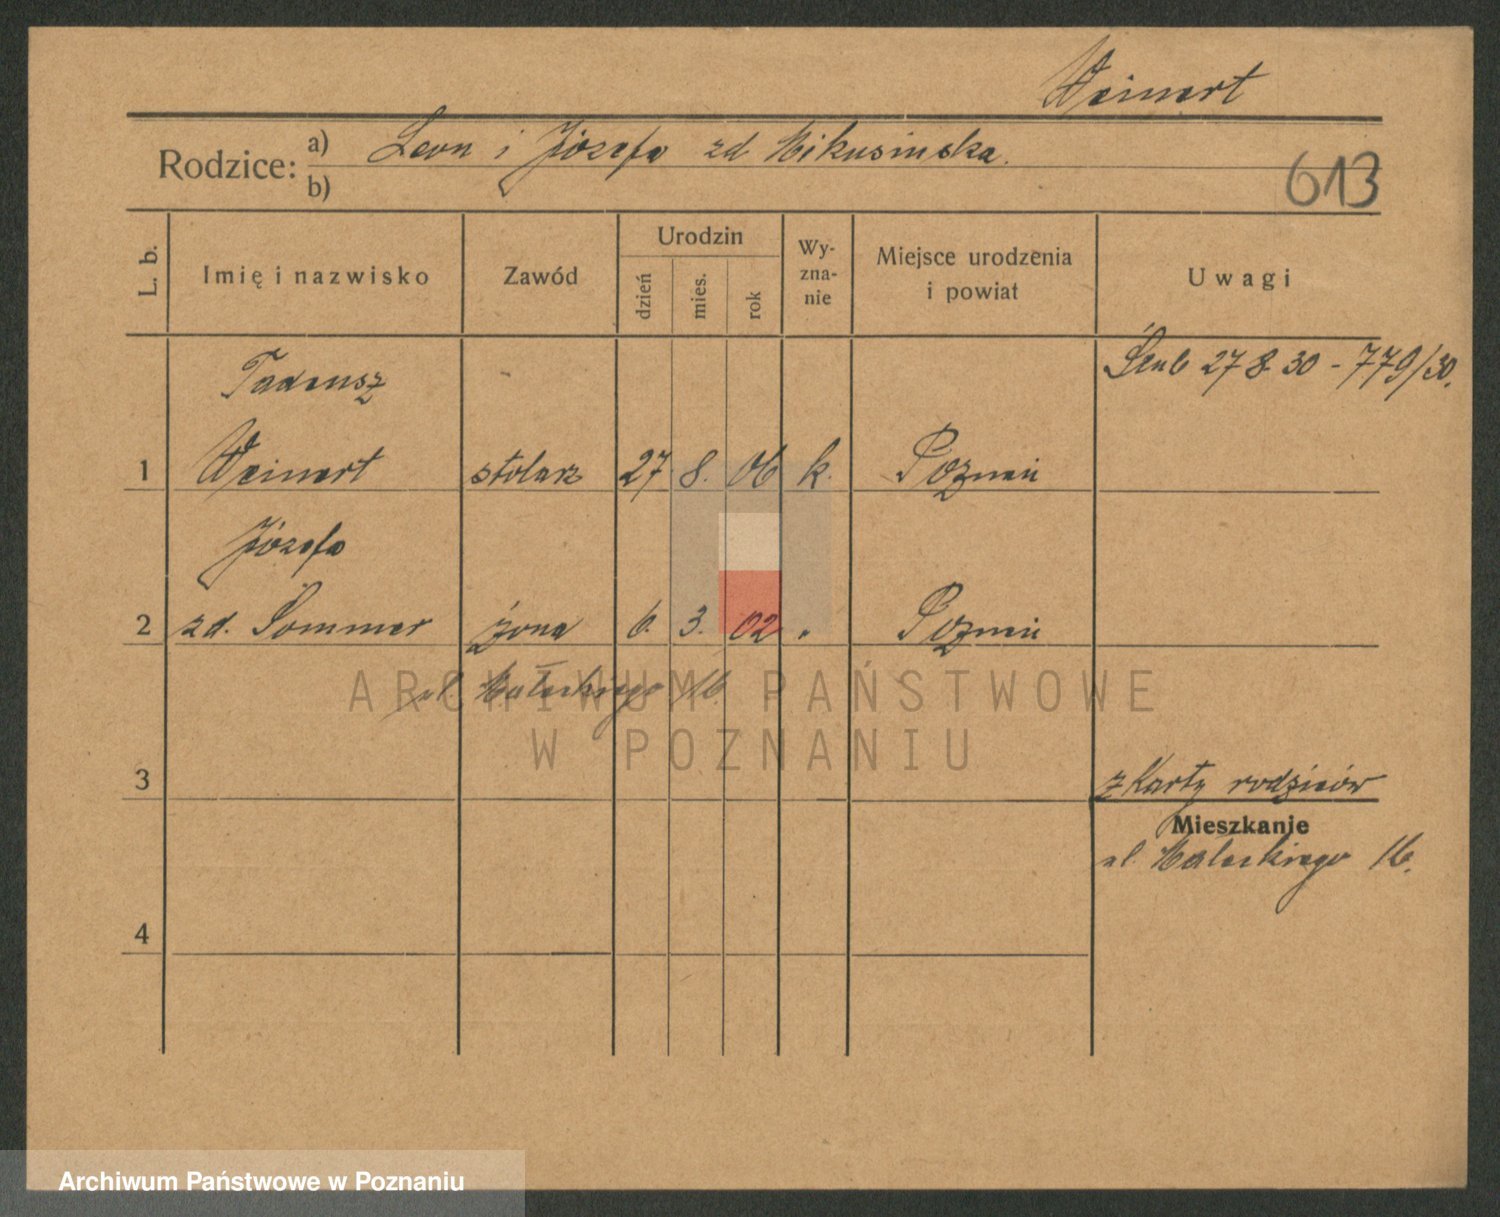 Weinert
Rodzice: a) Leon i Józefa zd Mikusinska.
b)
613
L. b.
Imię i nazwisko
Zawód
Urodzin
dzień
mies.
rok
Wy-
zna-
nie
Miejsce urodzenia
i powiat
Uwagi
Ślub 27 8 30 - 779/30.
Tadeusz
1 Weinert stolarz 27 8. 06 k. Poznań
Józefa
2 zd. Sommer żona 6. 3. 02 " Poznań
ul. Małeckiego 16
ARCHIWUM PAŃSTWOWE
W POZNANIU
3
z Karty rodziców
Mieszkanie
ul. Małeckiego 16.
4
Archiwum Państwowe w Poznaniu